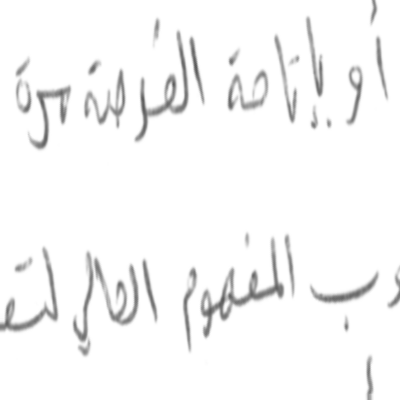 أو بإتاحة الفرصة مرة
المفهوم الحالي